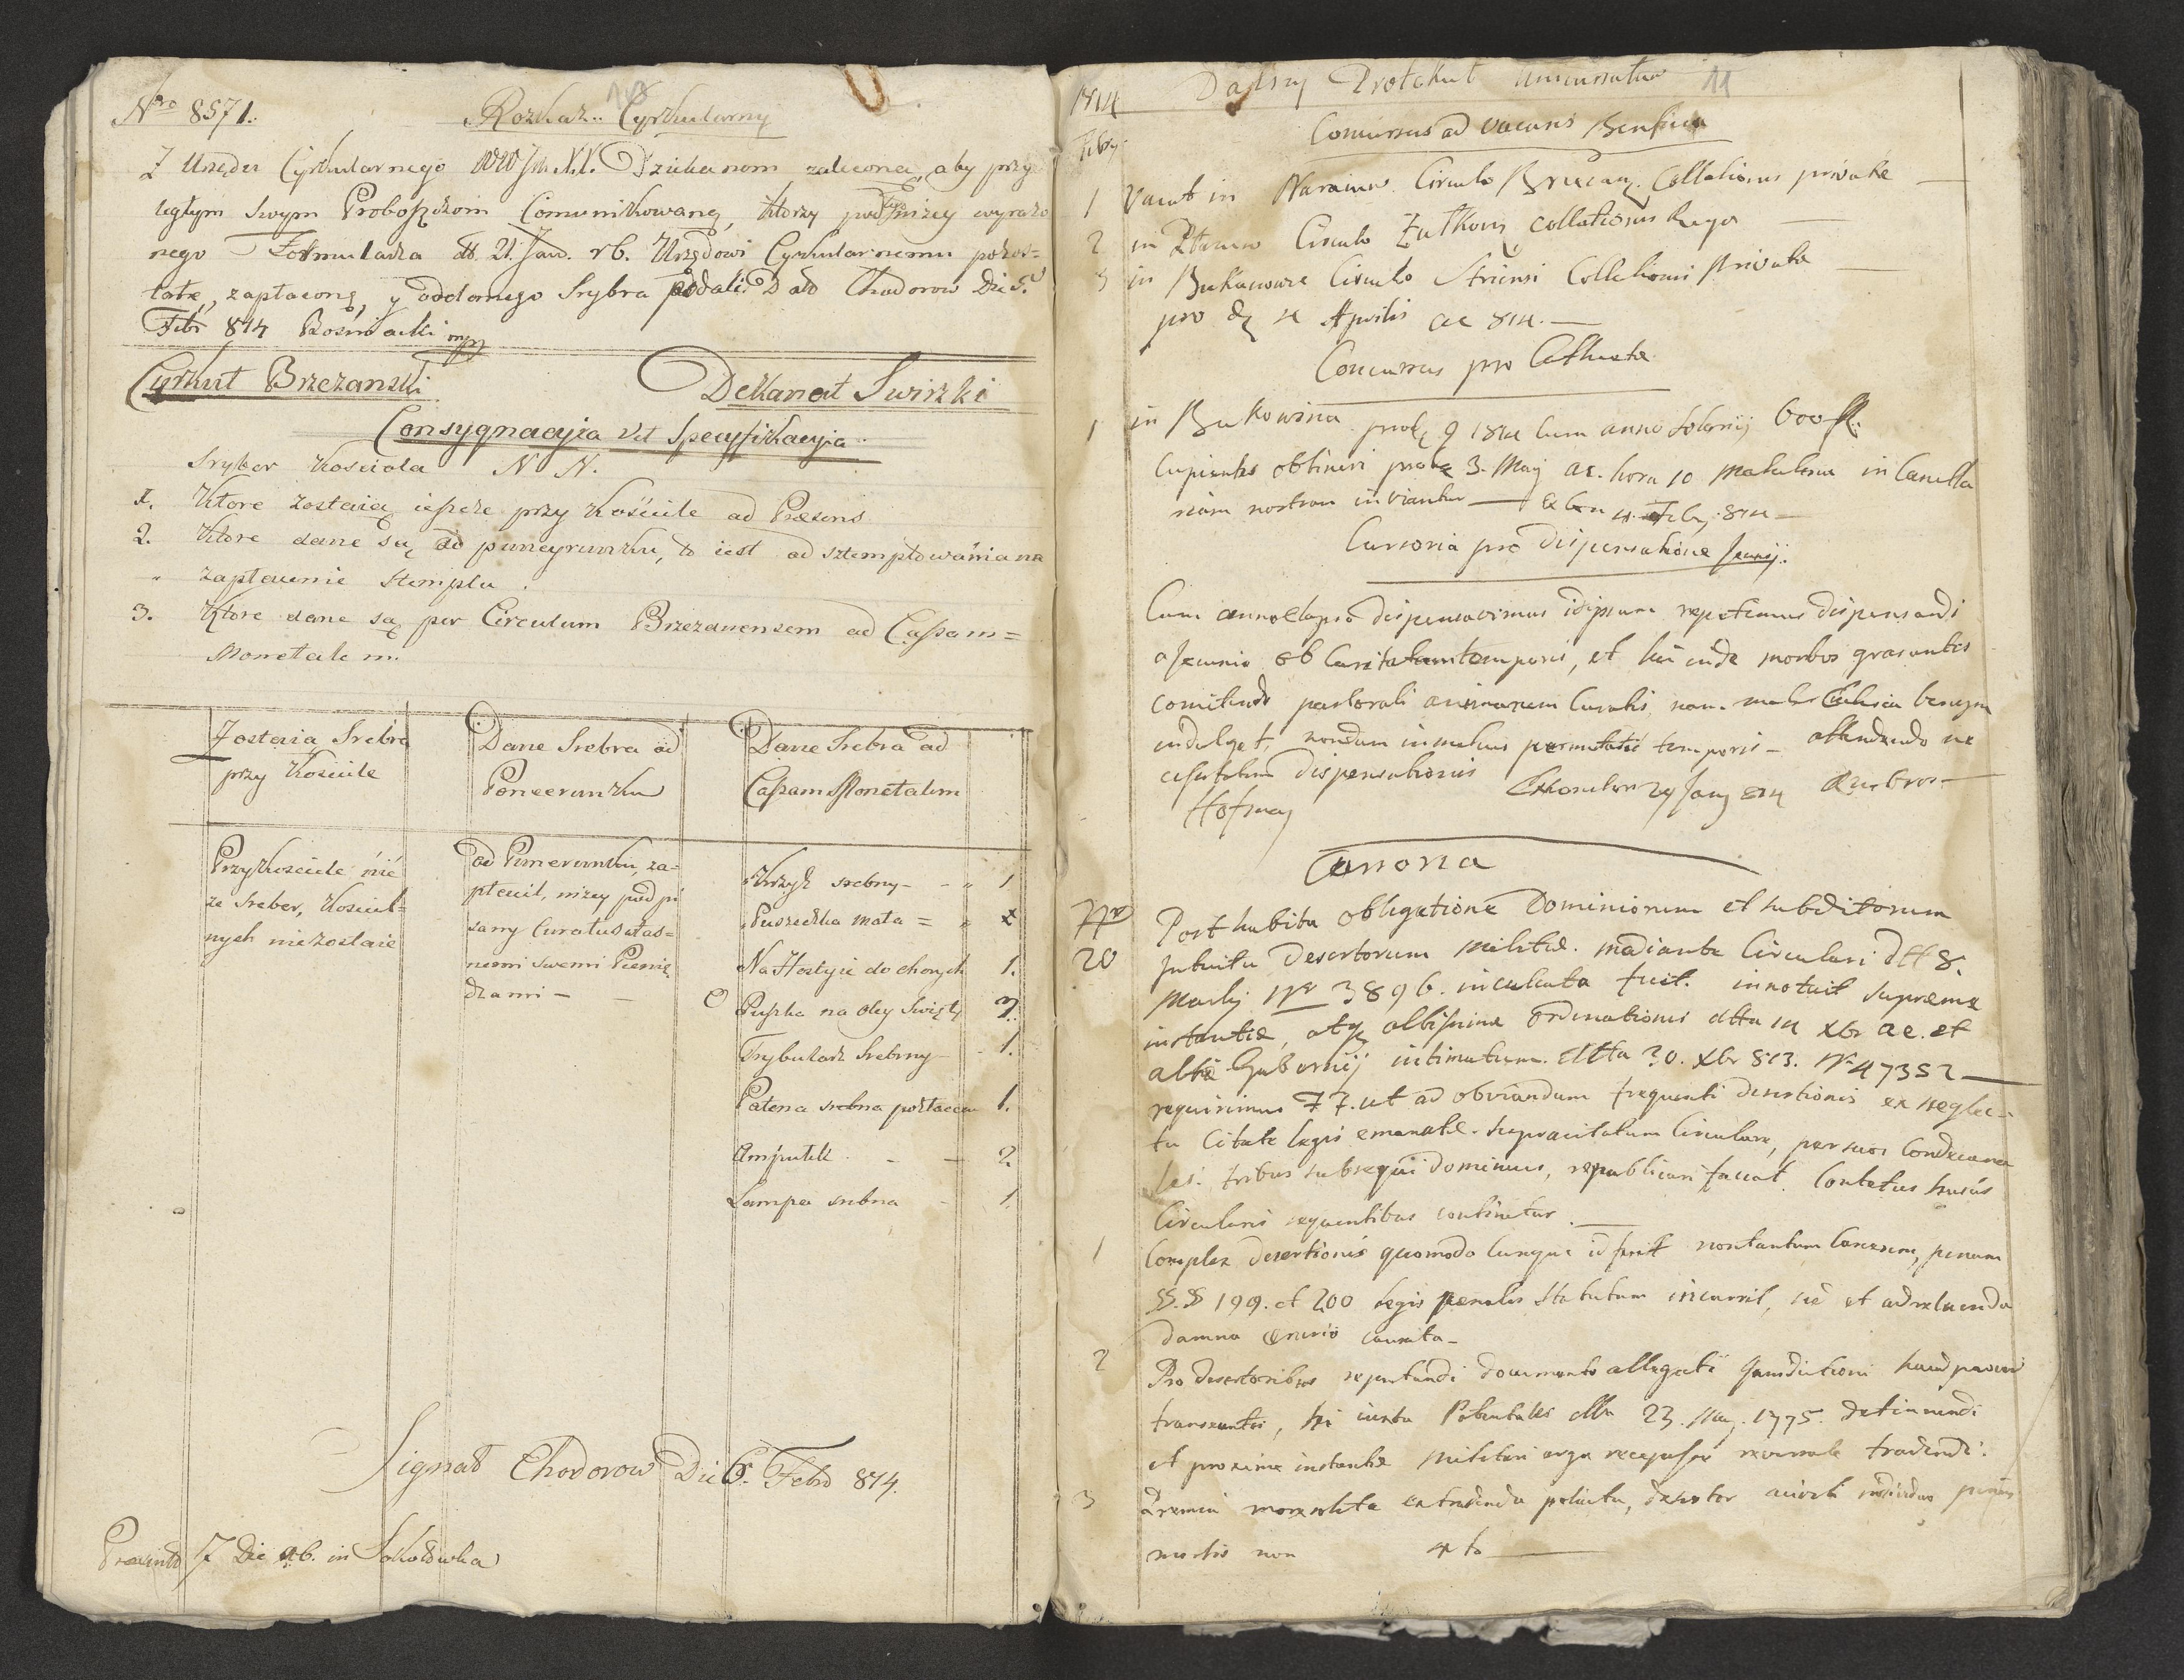 Nro 8571.
Rozkaz Cyrkularny
Z Urzędu Cyrkularnego Dziekanom zalecono, aby przy
ległym swym Proboszczom Comunikowano, ktorzy podług niżey wyrażo
nego Formularza dd. 21. Jan. rb. Urzędowi Cyrkularnemu pozos=
tałe, zapłacone, y oddanego Srybra podali Dato Chodorow Die 5ta
Febr 814 Rosnitacki mpp
Cyrkuł Brzezanski Dekanat Swirzki
Consygnacyia Vel Specyfikacyia
Sryber Kosciola N N.
1. Ktore zostaią ieszcze przy Kościele ad Præsens
2. Ktore dane są do puncyrunku, to iest od sztemplowania na
" zapłacenie stemplu.
3. Ktore dane są per Circulum Brzezanensem ad Cassam=
Monetalem.
Zostaią Srebra
przy Kosciele
Dane Srebra od
Poncerunku
Dane Srebra ad
Cassam Monetalem
Przy Kosciele nić
ze Sreber, Kosciel=
nych nie zostaie
od Punerunku, za-
płacił, niżey pod pi
sany Curatus włas=
nemi swemi Pienię
dzami -
Krzyż srebny - - " 1
Puszeczka mała = "
Na Hostyie do chorych 1.
Puszka na Oley Swięty
Trybularz Srebrny - 1.
Patena srebna pozłacana 1.
Ampułek - - 2
Lampa srebna - 1.
Signat Chodorow Die 6. Febr 814.
Præsento 7 Die rb. in Sokołowka
1814 Dalszy Protokuł 11
Febry
Concursus ad vacans Beneficia
1 Vacat in Naraiow Circulo Brzezan. Collationis privatæ
2 in Circulo Żułkow collationis Regia
3 in Bukaczowce Circulo Striensi Collationis Privatæ
pro d 4 Aprilis ac 814.
Concursus pro Catheta
1 in Bukowina 9 1814 cum anno Solarij 600 fl.
Cupientes obtineri 3. May ac. hora 10 matutina in Cancella
riam nostram inviantur 4. Feby. 814
Cursoria pro dispensatione Jeunij.
Cum anno elapso dispensavimus idipsum repetimus dispensandi
a Jeunio ob Caritatem temporis, et hinc inde morbos grasantes
comitendo pastorali animarum Curatis, nam mater Ecclesia benigne
indulget, nondum in melius permutatis temporis - attendendo ne
cesitatem dispensationis 24 Jany 814 Ambros.
Hofmay
Cannona
Nr 20 Post habita obligatione Dominiorum et subditorum
intuitu Desertorum militiæ. mediante Circulari dtt 8.
Martij Nr 3896. inculcata fuit. innotuit supremæ
instantiæ, atq altissime ordinationis dtta 14 xbr ac. et
altæ Gubernij intimatum dtta 30. xbr 813. Nr 47352
requirimus 77. ut ad obviandum frequenti desertionis ex neglec-
tu Citatæ legis emanatæ. supracitatum Circulare, per suos Condecana
les. tribus subsequi dominicis, republicari faciat. Contetus husus
Circularis sequentibus continetur.
1 Complex desertionis quomodo cunque id fecit non tantum Carcerem, penam
§§. 199. et 200 legis penalis statutam incurrit, sed et ad reluenda
damna ærario causata-
2 Pro desertoribus reputandi documento allegati Jurisdictioni
transeuntes, hi iuxta Patentales dtta 23. May. 1775. detinendi
et proxime instantiæ militari erga recepisse reversale tradendi.
3 Præmia more solito extradenda desertor
mortis non